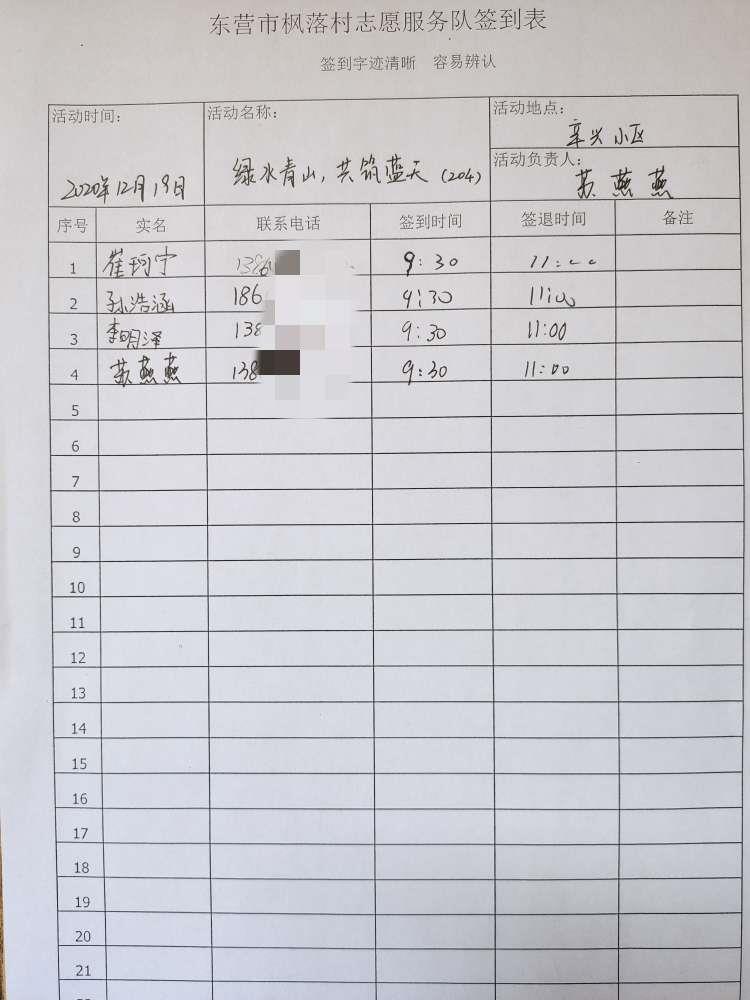 东营市枫落村志愿服务队签到表
签到字迹清晰 容易辨认
活动时间: 活动名称: 活动地点:
辛兴小区
2020年12月19日 绿水青山,共筑蓝天(204) 活动负责人:
苏燕燕
序号 实名 联系电话 签到时间 签退时间 备注
1 崔珂宁 138 9:30 11:00
2 孙浩涵 186 9:30 11:00
3 李明泽 138 9:30 11:00
4 苏燕燕 138 9:30 11:00
5
6
7
8
9
10
11
12
13
14
15
16
17
18
19
20
21